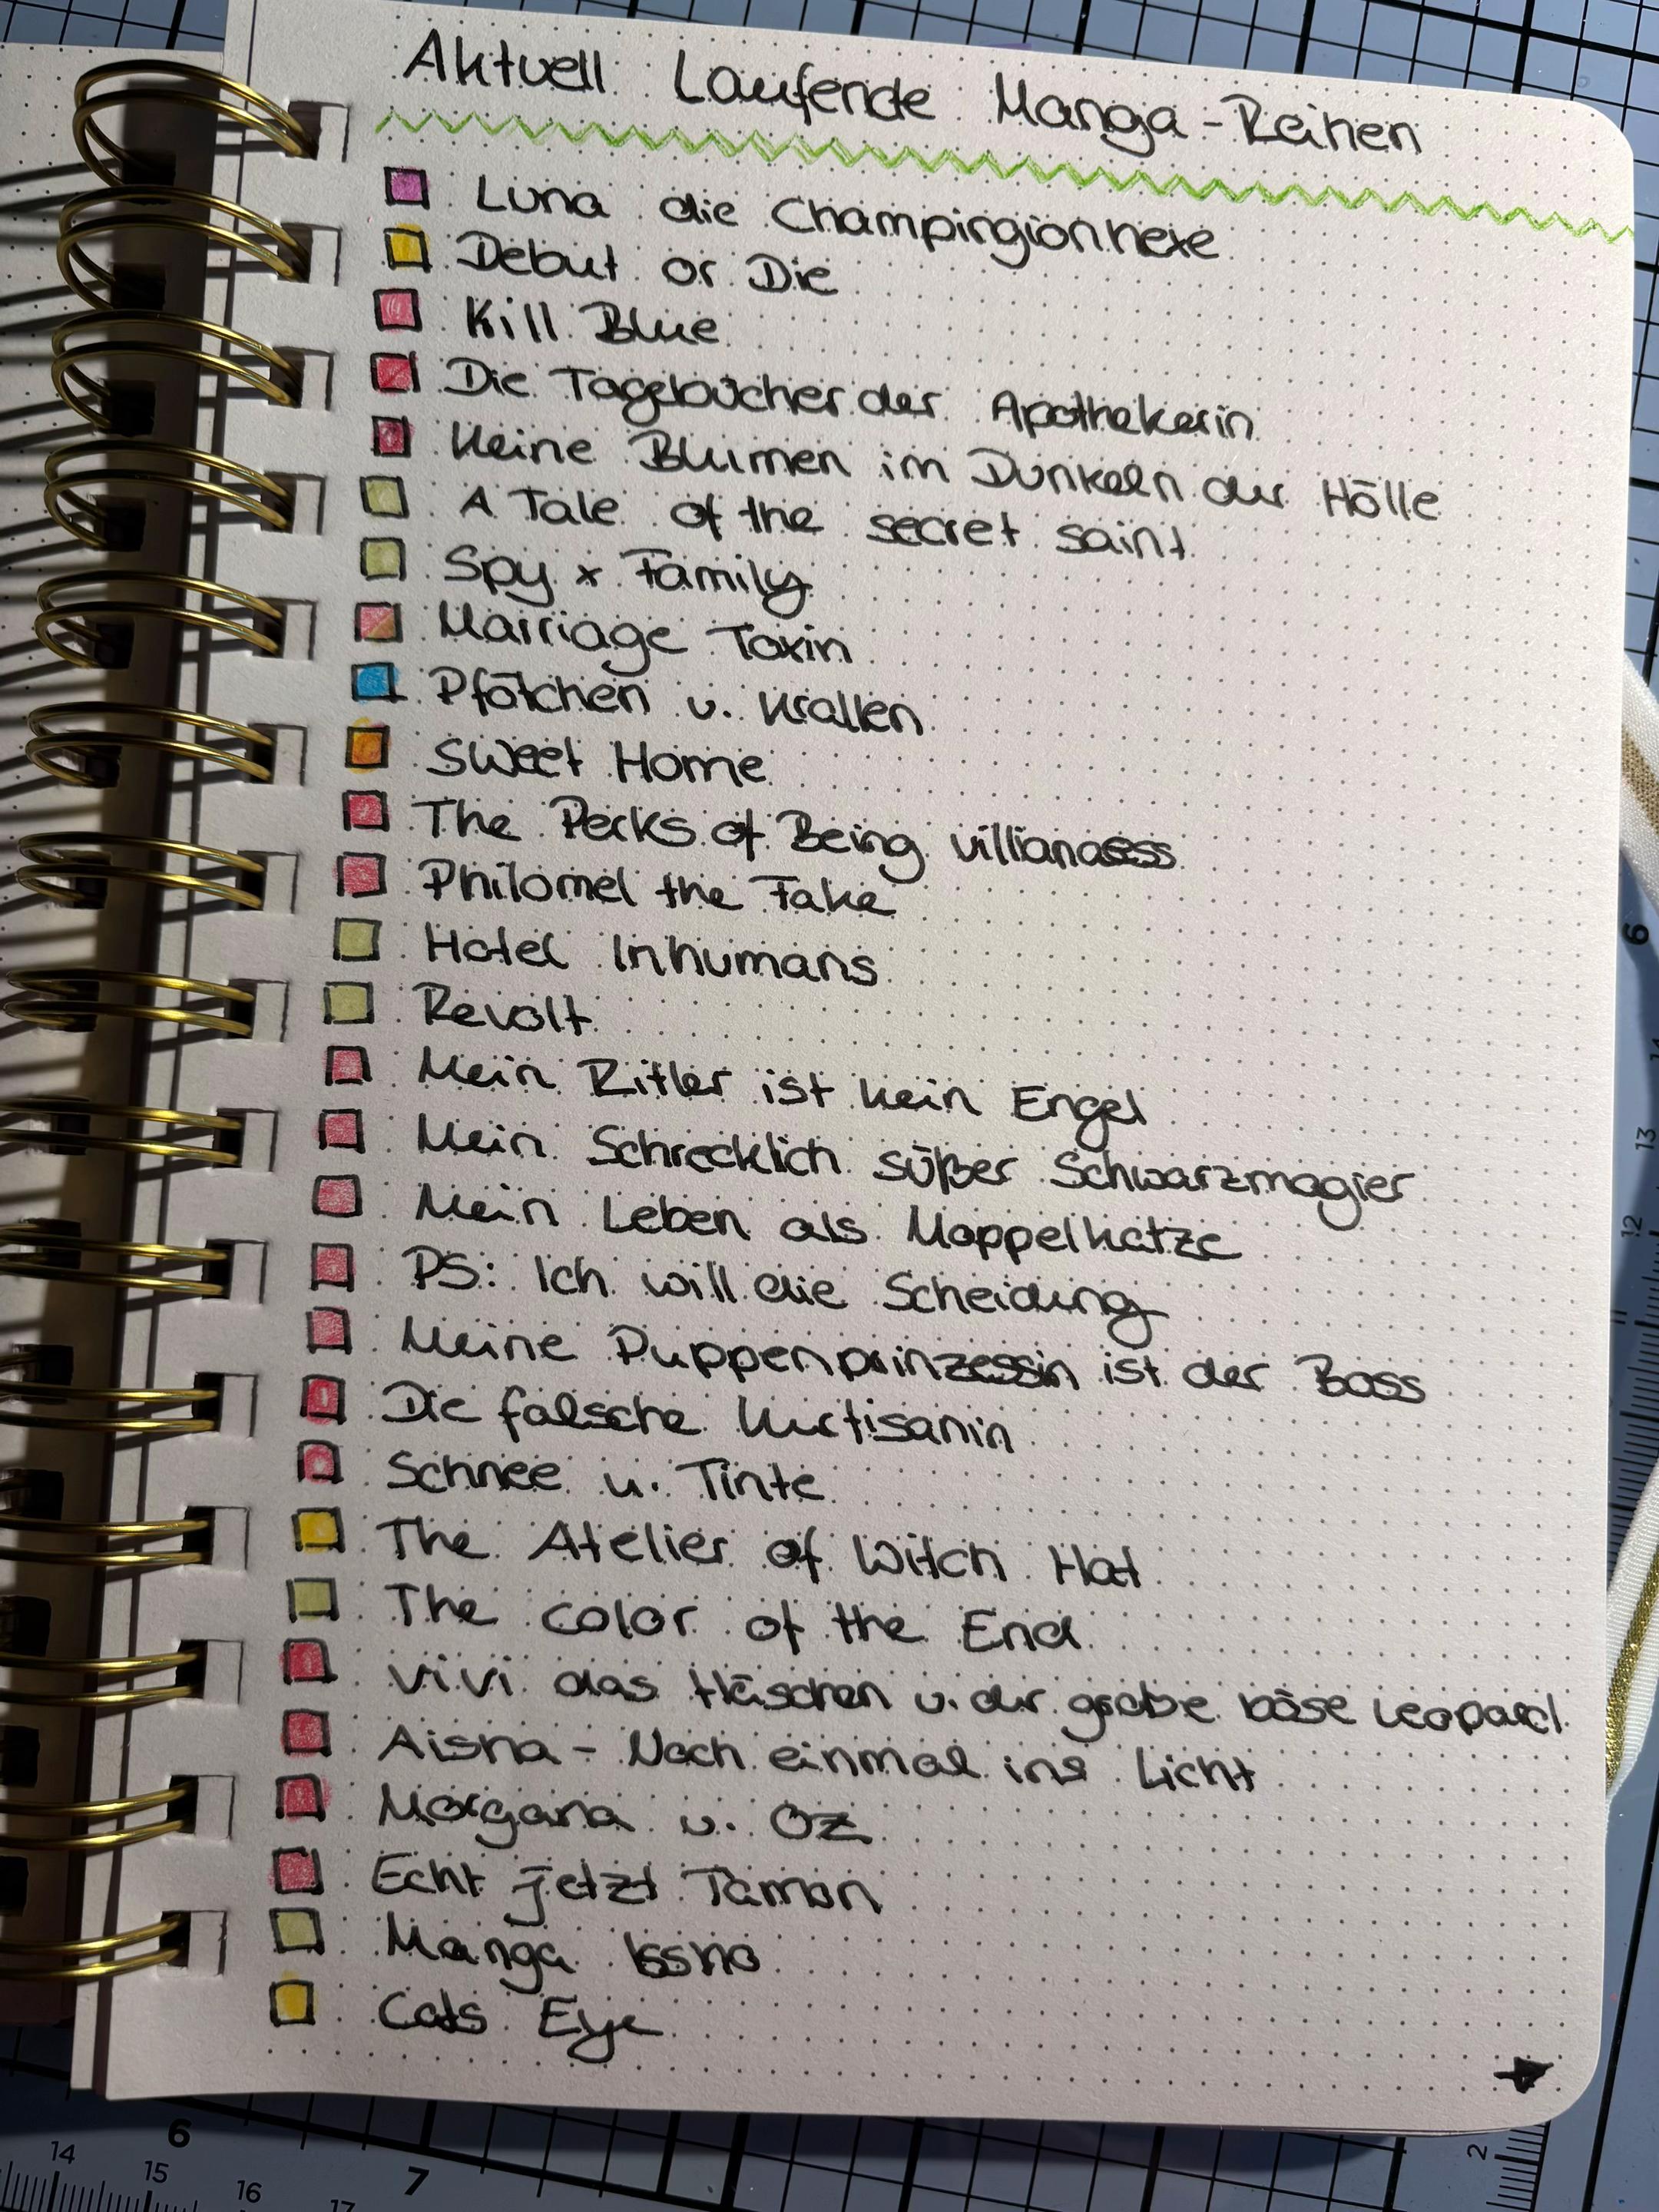 Aktuell Laufende Manga-Reihen
Luna die Champingionhexe
Debut or Die
Kill Blue
Die Tagebücher der Apothekerin
Keine Blumen im Dunkeln der Hölle
A Tale of the secret saint
Spy x Family
Marriage Toxin
Pfötchen u. Krallen
Sweet Home
The Perks of Being villianasess
Philomel the Fake
Hotel Inhumans
Revolt
Mein Ritter ist kein Engel
Mein Schrecklich süßer Schwarzmagier
Mein Leben als Moppelkatze
PS: Ich will die Scheidung
Meine Puppenprinzessin ist der Boss
Die falsche Kurtisanin
Schnee u. Tinte
The Atelier of Witch Hat
The color of the End
Vivi das Häschen u. der große böse Leopard
Aisha - Noch einmal ins Licht
Morgana u. Oz
Echt jetzt Tamon
Manga Issho
Cats Eye
6
13
12
2
6
7
14
15
16
17